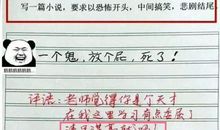 写一篇小说，要求以恐怖开头，中间搞笑，悲剧结尾。
一个鬼，放个屁，死了！
评语：老师觉得你是个天才
在我这里学习有点委屈了